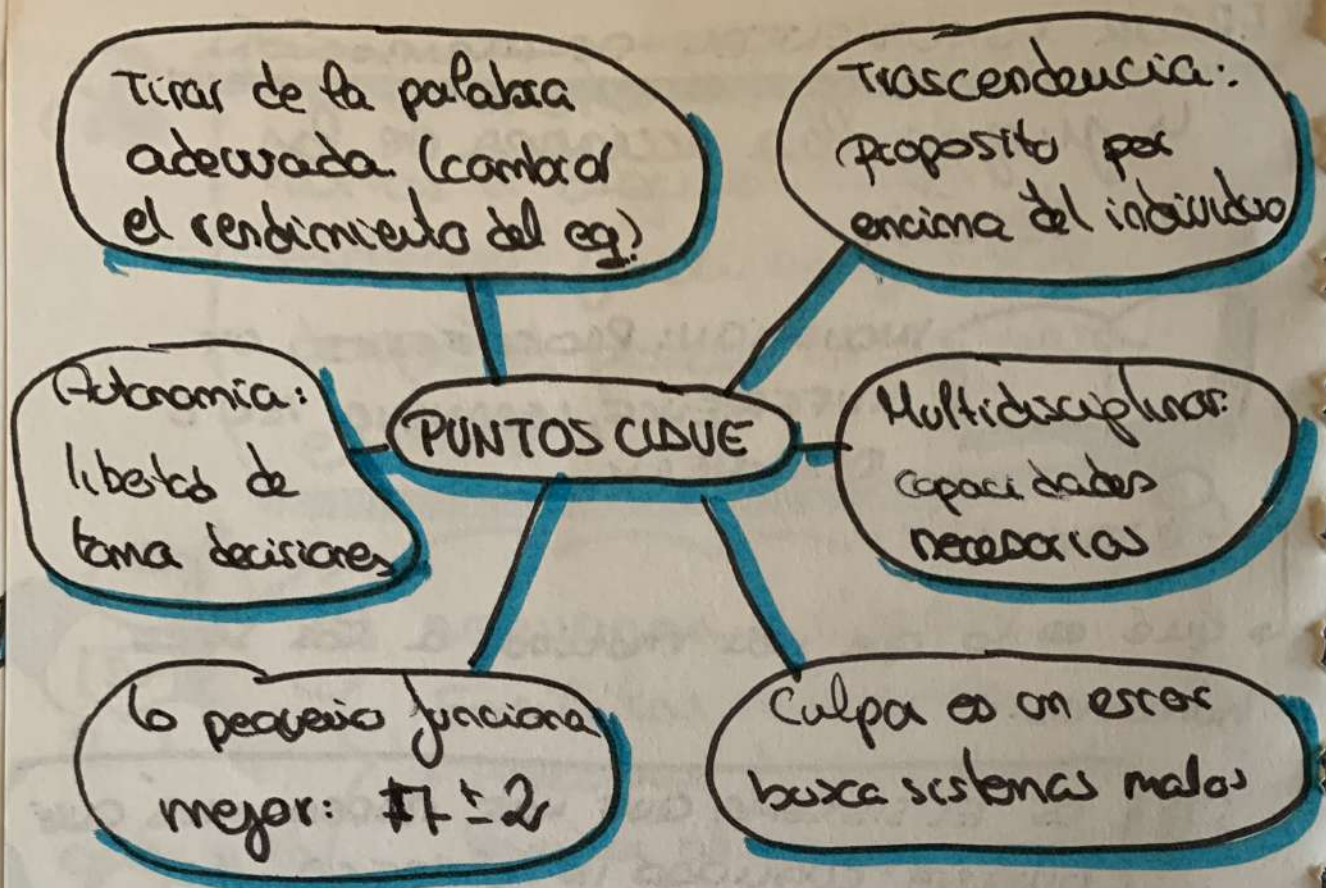 Tirar de la palabra
adecuada. (cambiar
el rendimiento del eq)
Trascendencia:
proposito por
encima del individuo
Autonomia:
libertad de
toma decisiones
PUNTOS CLAVE
Multidisciplinar:
capacidades
necesarias
lo pequeño funciona
mejor: 7 ± 2
Culpa es un error
busca sistemas malos